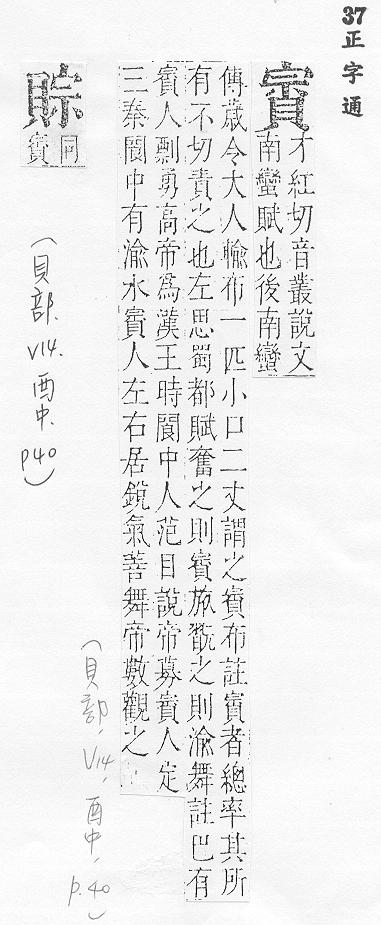 37正字通
賨
才紅切音叢說文
南蠻賦也後南蠻
傳歲令大人輸布一匹小口二丈謂之賨布註賨者總率其所
有不切責之也左思蜀都賦奮之則賨旅翫之則渝舞註巴有
賨人剽勇高帝爲漢王時閬中人范目說帝募賨人定
三秦閬中有渝水賨人左右居銳氣善舞帝數觀之
賩
同
賨
(貝部. V14. 酉中. p40)
(貝部, V14, 酉中, p.40)